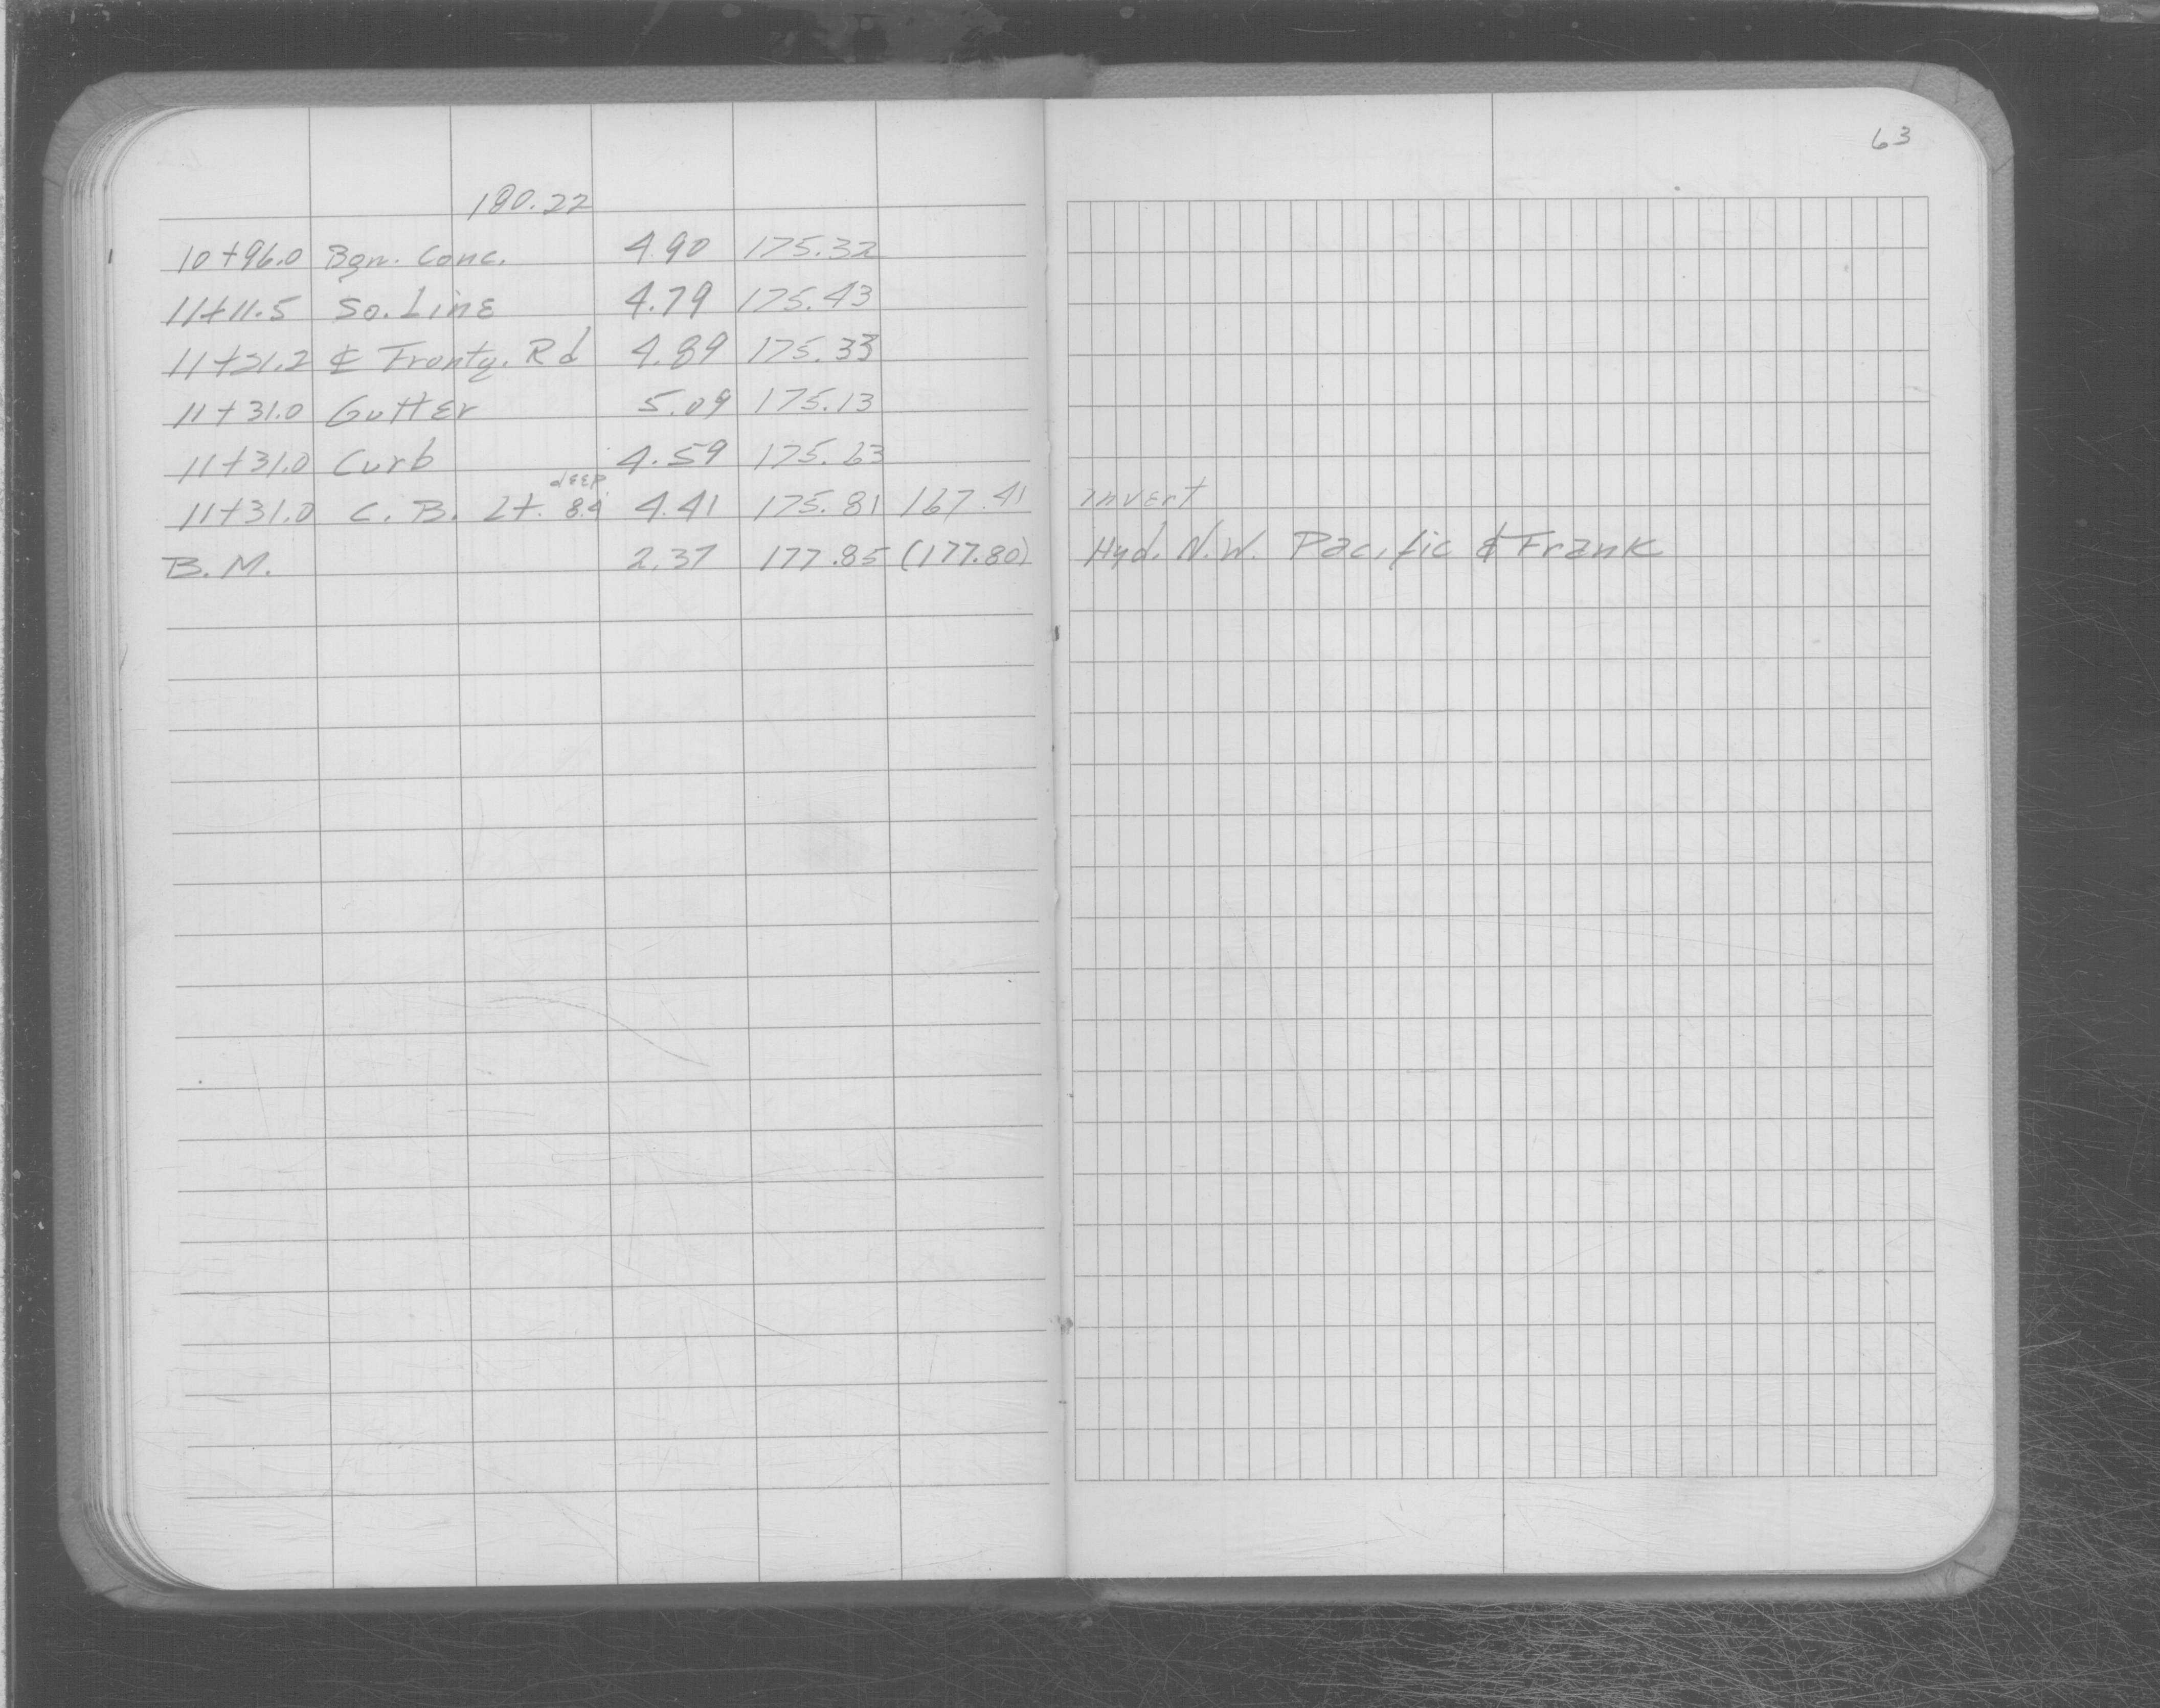 63
180.22
10+96.0 Bgn. Conc. 4.90 175.32
11+11.5 So. Line 4.79 175.43
11+21.2 ℄ Frontg. Rd 4.89 175.33
11+31.0 Gutter 5.09 175.13
11+31.0 Curb 4.59 175.63
deep
11+31.0 C. B. Lt. 8.4' 4.41 175.81 167.41 invert
B. M. 2.37 177.85 (177.80) Hyd. N.W. Pacific & Frank